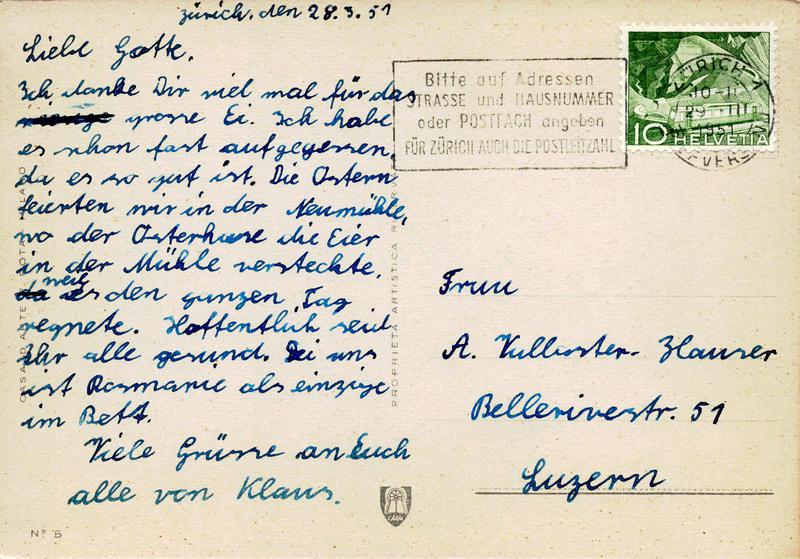 Zürich, den 28.3.51
Liebe Gotte,
Ich danke Dir viel mal für das
grosse Ei. Ich habe
es schon fast aufgegessen,
da es so gut ist. Die Ostern
feierten wir in der Neumühle,
wo der Osterhase die Eier
in der Mühle versteckte,
weil es den ganzen Tag
regnete. Hoffentlich seid
Ihr alle gesund. Bei uns
ist Rosmarie als einzige
im Bett.
Viele Grüsse an Euch
alle von Klaus.
Nº 5
PROPRIETÀ ARTISTICA
Bitte auf Adressen
STRASSE und HAUSNUMMER
oder POSTFACH angeben
FÜR ZÜRICH AUCH DIE POSTLEITZAHL
ZÜRICH 1
29. III
1951
10 HELVETIA
Frau
A. Hauser
Bellerivestr. 51
Luzern